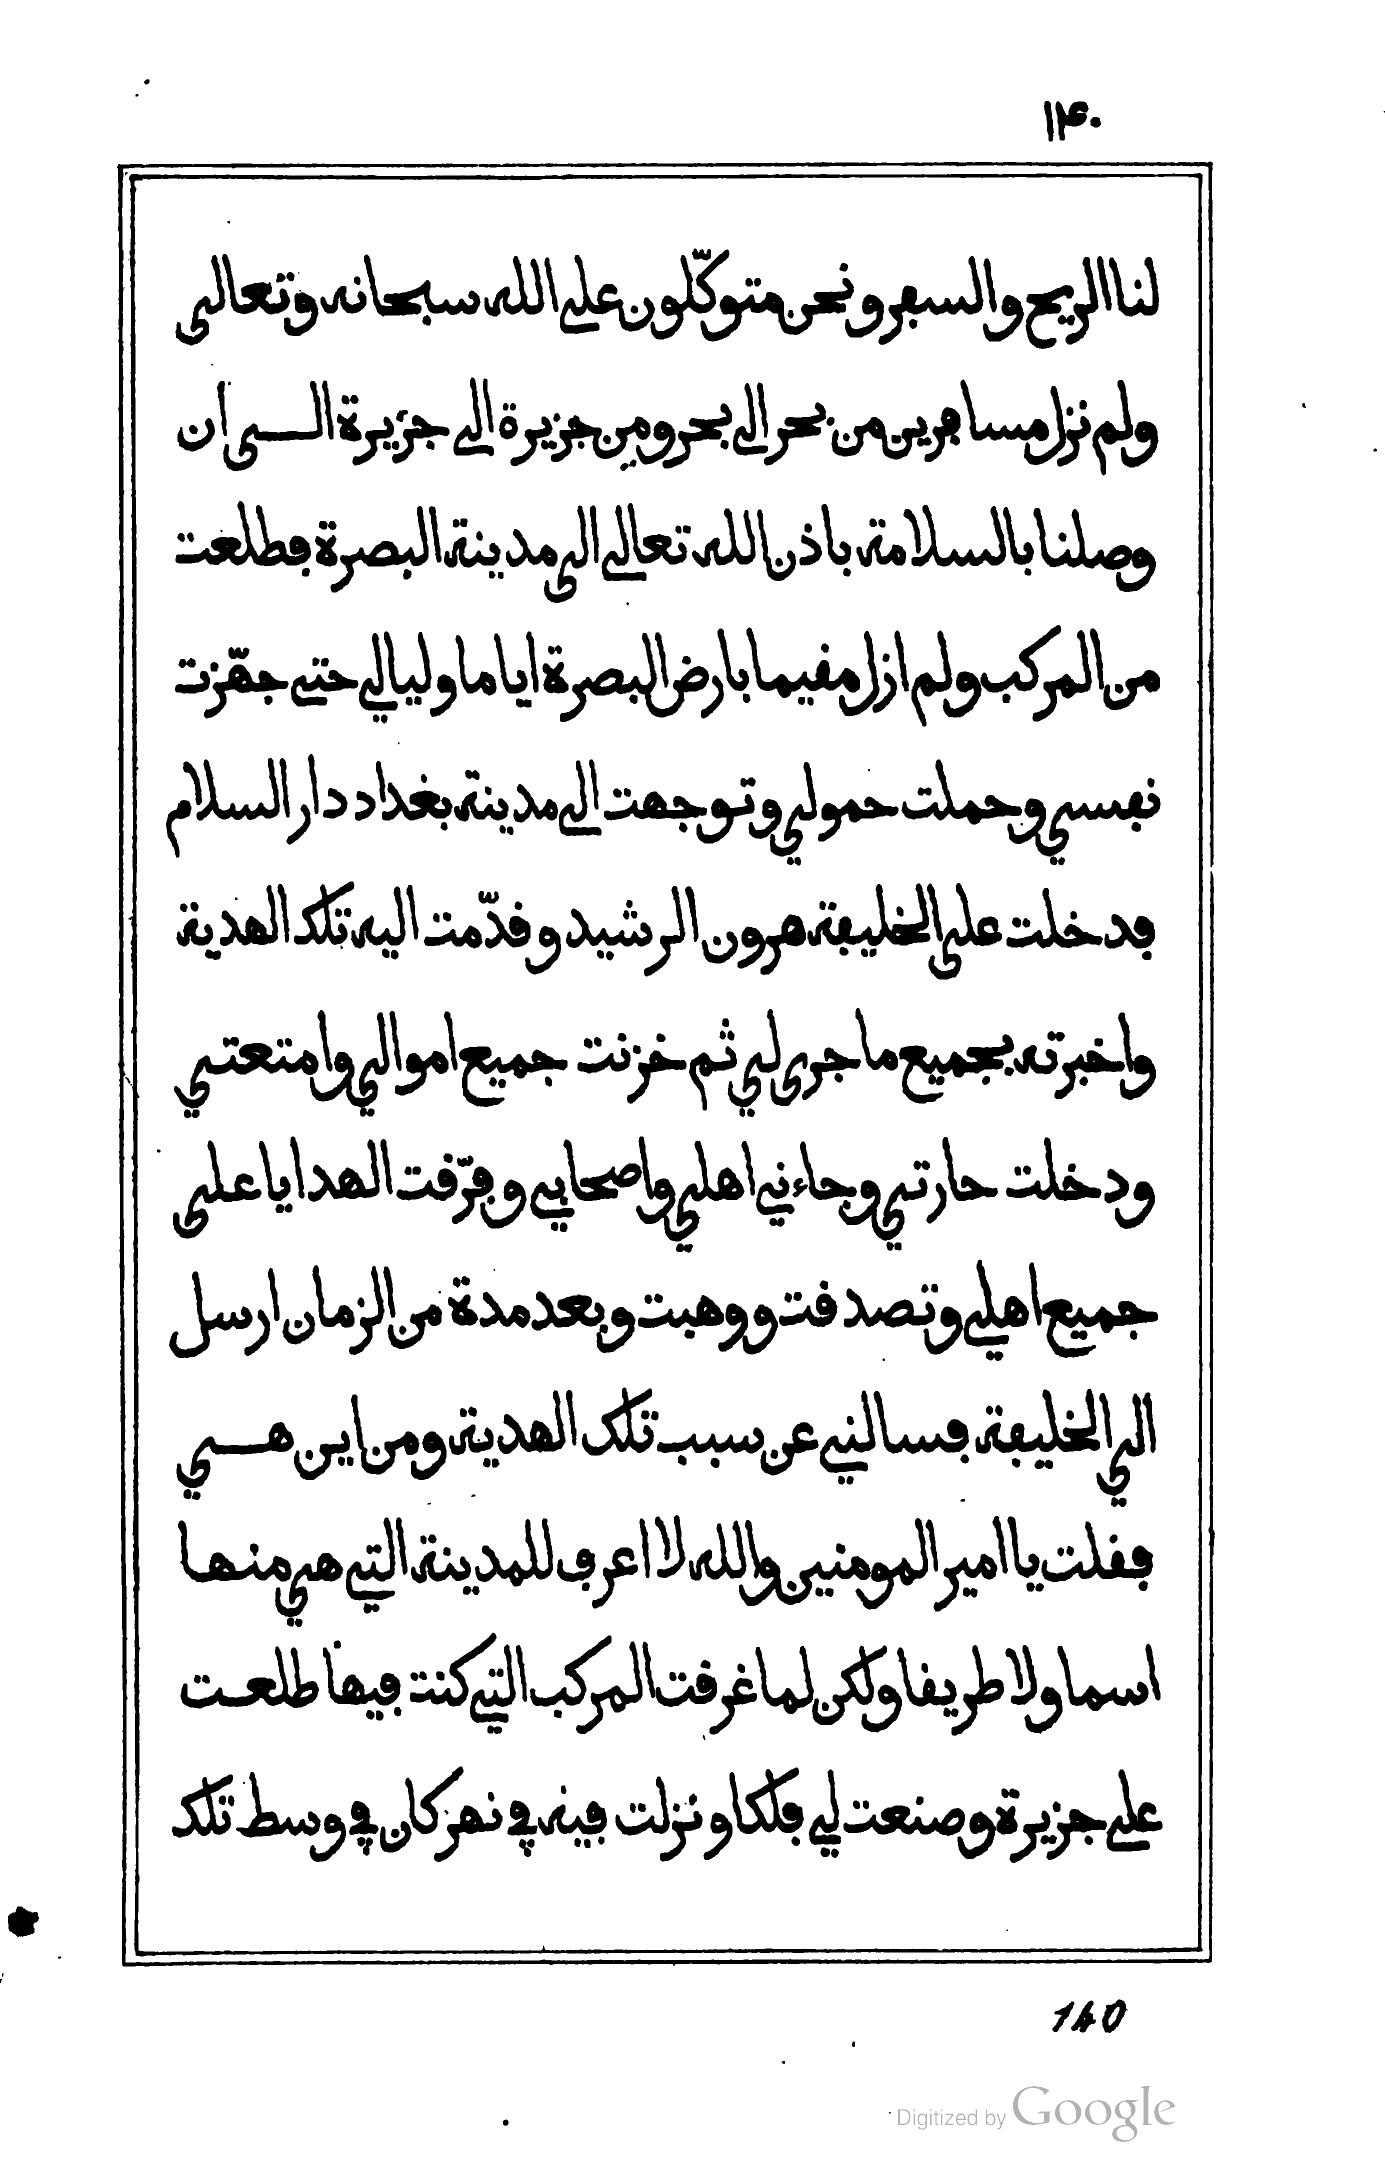 ١٤٠
لنا الريح والسفر ونحن متوكّلون على الله سبحانه وتعالى
ولم نزل مسافرين من بحر الى بحر ومن جزيرة الى جزيرة الـــى ان
وصلنا بالسلامة باذن الله تعالى الى مدينة البصرة فطلعت
من المركب ولم ازل مقيما بارض البصرة اياما وليالي حتى جهّزت
نفسي وحملت حمولي وتوجهت الى مدينة بغداد دار السلام
فدخلت على الخليفة هرون الرشيد وقدّمت اليه تلك الهدية
واخبرته بجميع ما جرى لي ثم خزنت جميع اموالي وامتعتي
ودخلت حارتي وجاءني اهلي واصحابي وفرّقت الهدايا على
جميع اهلي وتصدقت ووهبت وبعد مدة من الزمان ارسل
الي الخليفة فسالني عن سبب تلك الهدية ومن اين هـــي
فقلت يا امير المومنين والله لا اعرف للمدينة التي هي منها
اسما ولا طريقا ولكن لما غرقت المركب التي كنت فيها طلعت
على جزيرة وصنعت لي فلكا ونزلت فيه في نهر كان في وسط تلك
140
Digitized by Google